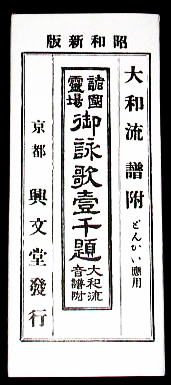 昭和新版
大和流譜附どんかい應用
諸國靈場
御詠歌壹千題
大和流音譜附
京都 興文堂發行